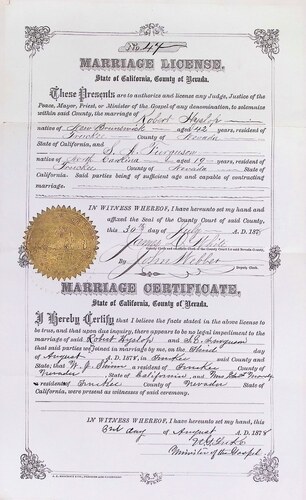 No. 44
MARRIAGE LICENSE.
State of California, County of Nevada.
These Presents are to authorize and license any Judge, Justice of the
Peace, Mayor, Priest, or Minister of the Gospel of any denomination, to solemnize
within said County, the marriage of Robert Hyslop
native of New Brunswick aged 42 years, resident of
Truckee County of Nevada
State of California, and S. A. Ferguson
native of North Carolina aged 19 years, resident of
Truckee County of Nevada State of
California. Said parties being of sufficient age and capable of contracting
marriage.
IN WITNESS WHEREOF, I have hereunto set my hand and
affixed the Seal of the County Court of said County,
this 30th day July A.D. 187
James D. White
By John Webber
Deputy Clerk.
MARRIAGE CERTIFICATE.
State of California, County of Nevada.
I Hereby Certify that I believe the facts stated in the above license
to be true, and that upon due inquiry, there appears to be no legal impediment to the
marriage of said Robert Hyslop and S. A. Ferguson
that said parties were joined in marriage by me, on the Third day
of August A.D. 1878, in Truckee said County and
State; that W. J. a resident of Truckee
Nevada, State of California, and Mrs. Moody
a resident of Truckee County of Nevada State of
California, were present as witnesses of said ceremony.
IN WITNESS WHEREOF, I have hereunto set my hand this
3rd day of August A.D. 1878
Minister of the Gospel